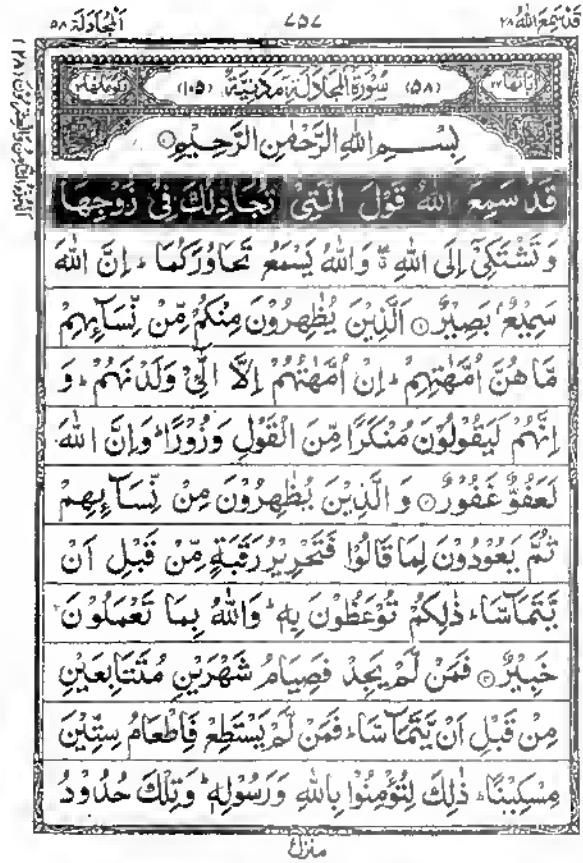 قَدْ سَمِعَ اللّٰهُ ٢٨
٧٥٧
اَلْمُجَادَلَة ٥٨
اٰيَاتُهَا ٢٢
(٥٨) سُوْرَةُ الْمُجَادَلَةِ مَدَنِيَّةٌ (١٠٥)
رُكُوْعَاتُهَا ٣
بِسْمِ اللّٰهِ الرَّحْمٰنِ الرَّحِيْمِ
قَدْ سَمِعَ اللّٰهُ قَوْلَ الَّتِيْ تُجَادِلُكَ فِيْ زَوْجِهَا
وَتَشْتَكِيْٓ اِلَى اللّٰهِ ۖ وَاللّٰهُ يَسْمَعُ تَحَاوُرَكُمَا ؕ اِنَّ اللّٰهَ
سَمِيْعٌۢ بَصِيْرٌ ۝١ اَلَّذِيْنَ يُظٰهِرُوْنَ مِنْكُمْ مِّنْ نِّسَآئِهِمْ
مَّا هُنَّ اُمَّهٰتِهِمْ ؕ اِنْ اُمَّهٰتُهُمْ اِلَّا الّٰٓـِٔيْ وَلَدْنَهُمْ ؕ وَ
اِنَّهُمْ لَيَقُوْلُوْنَ مُنْكَرًا مِّنَ الْقَوْلِ وَزُوْرًا ؕ وَاِنَّ اللّٰهَ
لَعَفُوٌّ غَفُوْرٌ ۝٢ وَ الَّذِيْنَ يُظٰهِرُوْنَ مِنْ نِّسَآئِهِمْ
ثُمَّ يَعُوْدُوْنَ لِمَا قَالُوْا فَتَحْرِيْرُ رَقَبَةٍ مِّنْ قَبْلِ اَنْ
يَّتَمَآسَّا ؕ ذٰلِكُمْ تُوْعَظُوْنَ بِهٖ ؕ وَاللّٰهُ بِمَا تَعْمَلُوْنَ
خَبِيْرٌ ۝٣ فَمَنْ لَّمْ يَجِدْ فَصِيَامُ شَهْرَيْنِ مُتَتَابِعَيْنِ
مِنْ قَبْلِ اَنْ يَّتَمَآسَّا ۚ فَمَنْ لَّمْ يَسْتَطِعْ فَاِطْعَامُ سِتِّيْنَ
مِسْكِيْنًا ؕ ذٰلِكَ لِتُؤْمِنُوْا بِاللّٰهِ وَرَسُوْلِهٖ ؕ وَتِلْكَ حُدُوْدُ
منزل